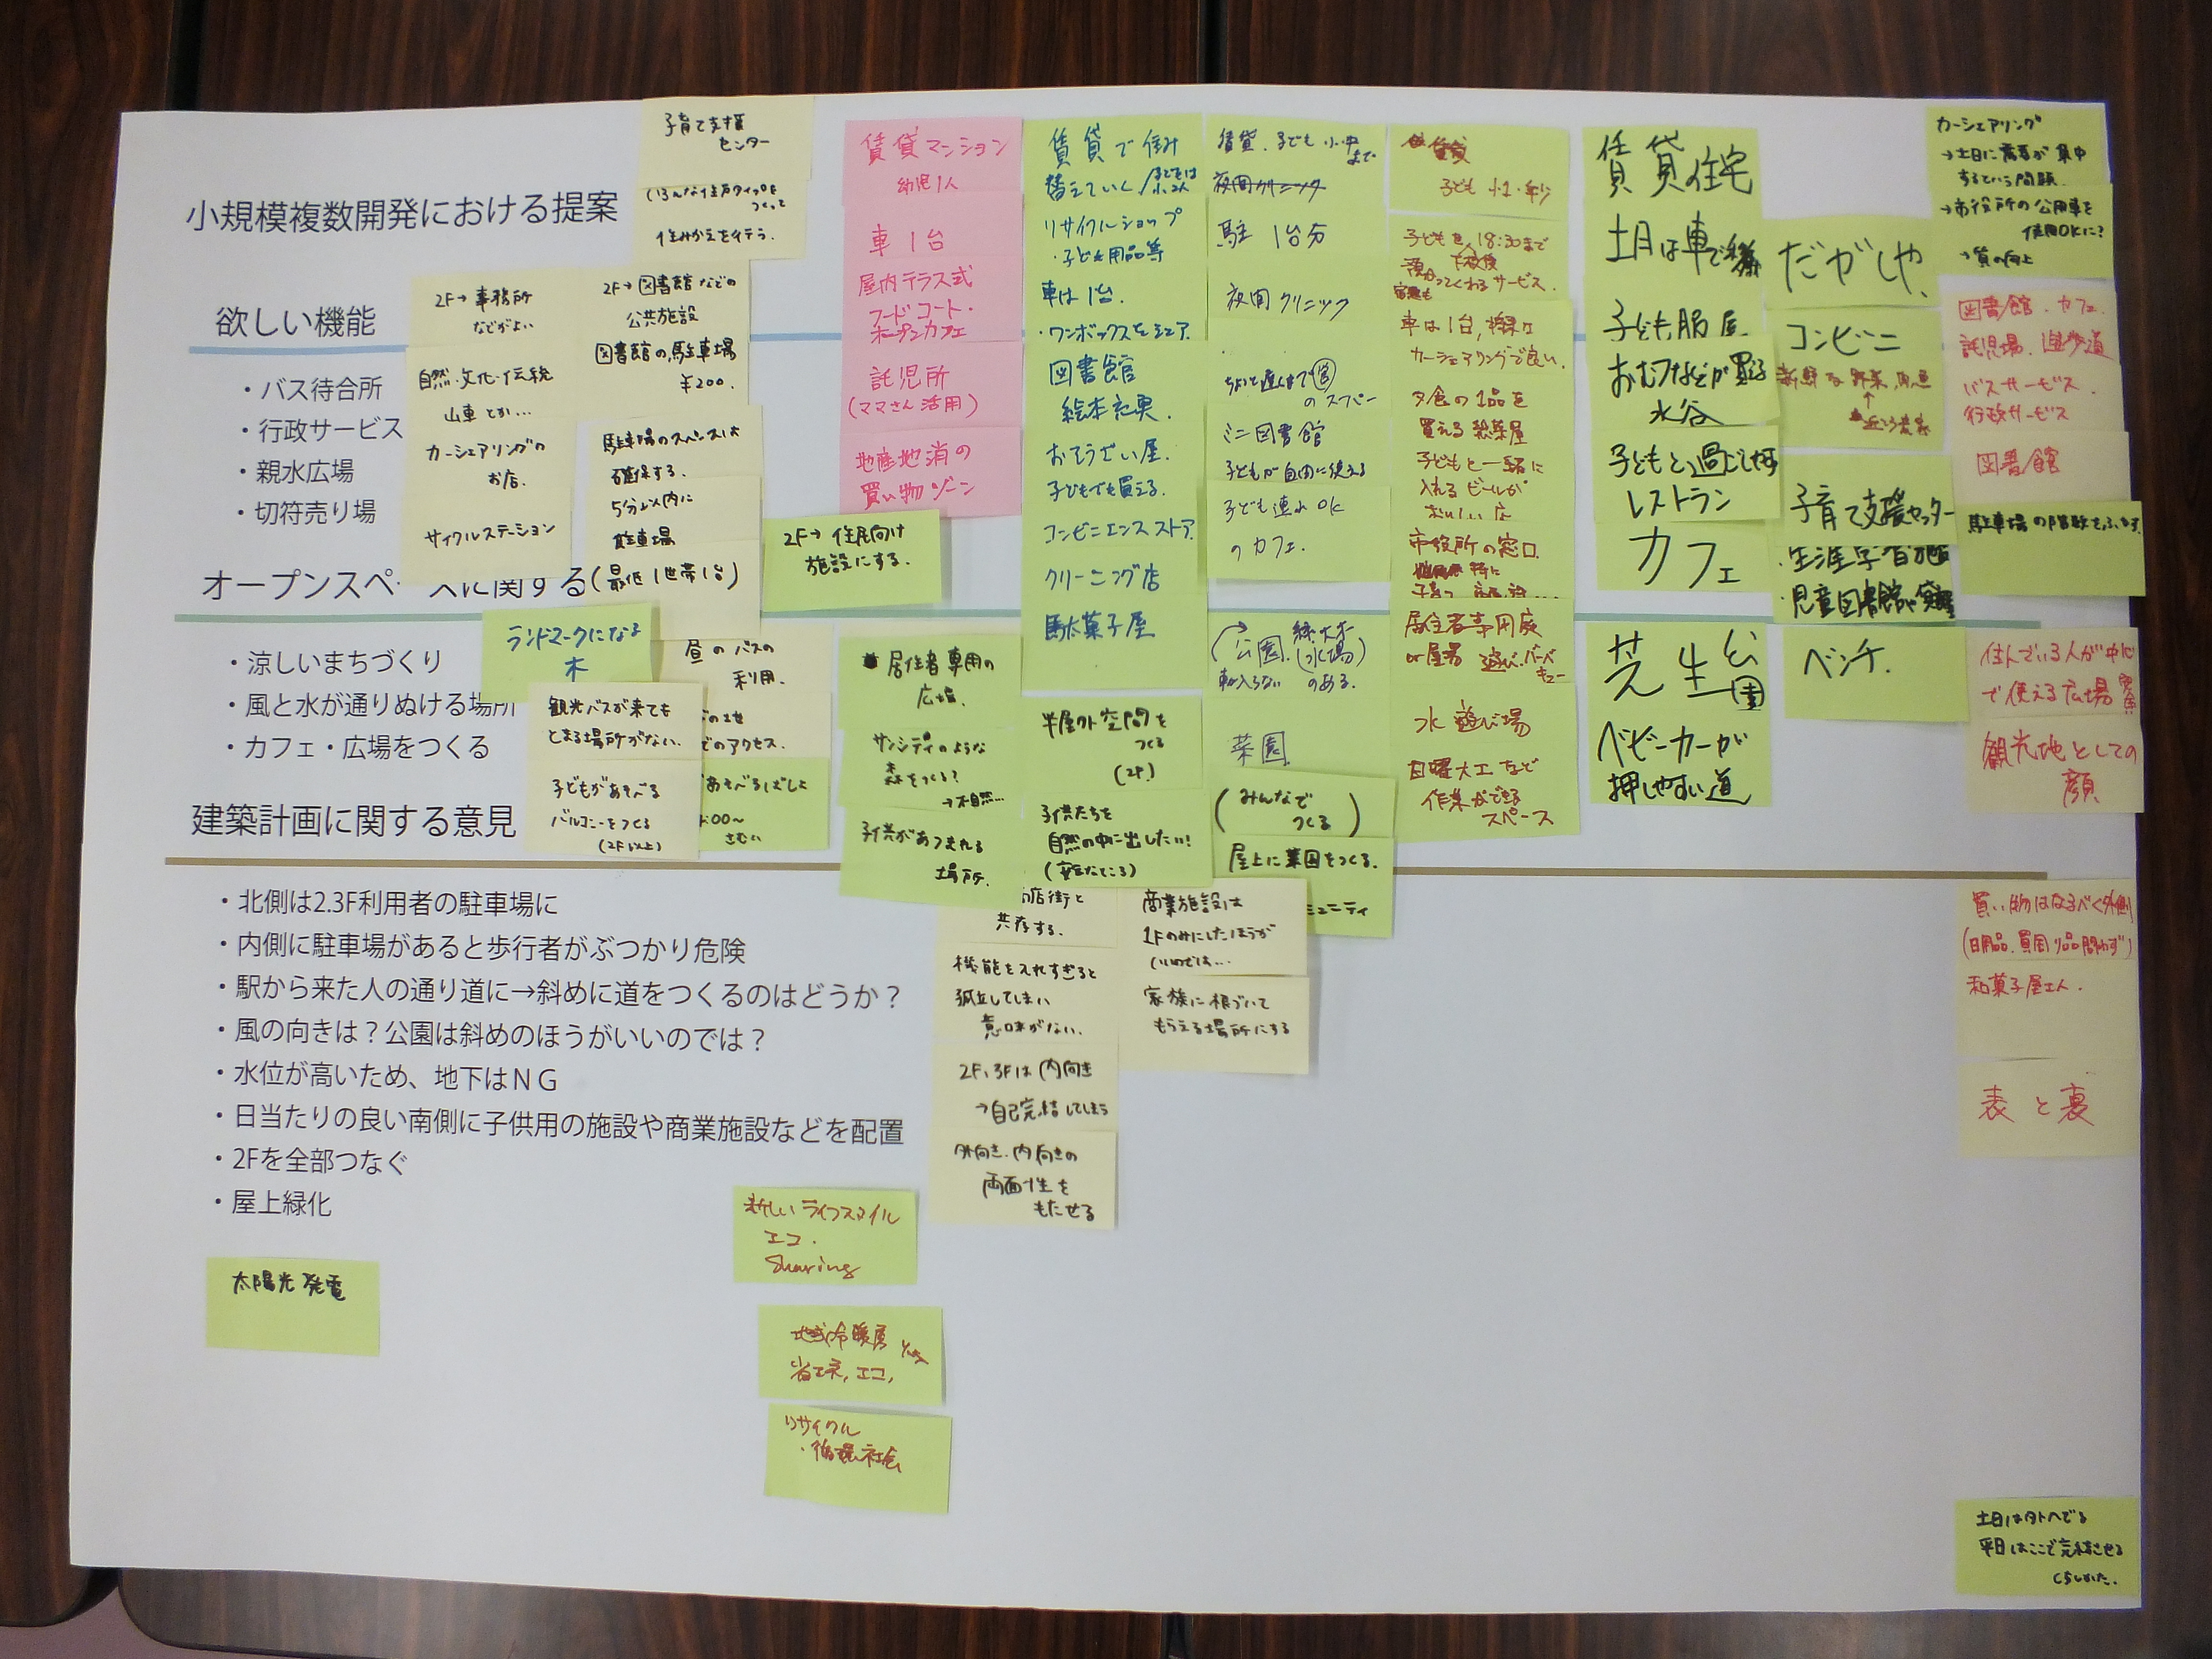 小規模複数開発における提案
欲しい機能
・バス待合所
・行政サービス
・親水広場
・切符売り場
オープンスペ
に関する
・涼しいまちづくり
・風と水が通りぬける場所
・カフェ・広場をつくる
建築計画に関する意見
・北側は2.3F利用者の駐車場に
・内側に駐車場があると歩行者がぶつかり危険
・駅から来た人の通り道に→斜めに道をつくるのはどうか？
・風の向きは？公園は斜めのほうがいいのでは？
・水位が高いため、地下はＮＧ
・日当たりの良い南側に子供用の施設や商業施設などを配置
・2Fを全部つなぐ
・屋上緑化
太陽光発電
子育て支援
センター
いろんな住戸タイプを
つくって
住みかえを行う.
2F→事務所
などがよい
自然・文化・伝統
山車とか…
カーシェアリングの
お店.
サイクルステーション
2F→図書館などの
公共施設
図書館の駐車場
¥200.
駐車場のスペースは
確保する.
5分以内に
駐車場
(最低1世帯1台)
2F→住民向け
施設にする.
ランドマークになる
木
昼のバスの
利用.
でのアクセス.
観光バスが来ても
とまる場所がない.
子どもがあそべる
バルコニーをつくる
(2F以上)
あそべるばしょ
さむい
賃貸マンション
幼児1人
車1台
屋内テラス式
フードコート・
オープンカフェ
託児所
(ママさん活用)
地産地消の
買い物ゾーン
居住者専用の
広場.
サンシティのような
森をつくる?
→不自然…
子供があつまれる
場所.
賃貸で住み
替えていく
リサイクルショップ
・子ども用品等
車は1台.
・ワンボックスをシェア.
図書館
絵本充実.
おそうざい屋.
子どもでも買える.
コンビニエンスストア.
クリーニング店
駄菓子屋
半屋外空間を
つくる
(2F)
子供たちを
自然の中に出したい!
(安全なところ)
店街と
共存する.
機能を入れすぎると
孤立してしまい
意味がない.
2F、3Fは内向き
→自己完結してしまう
外向き・内向きの
両面性を
もたせる
商業施設は
1Fのみにしたほうが
いいのでは…
家族に根づいて
もらえる場所にする
賃貸.子ども小中
まで
夜間クリニック
駐 1台分
夜間クリニック
ちょいと遅くまで営
のスーパー
ミニ図書館
子どもが自由に使える
子ども連れOK
のカフェ.
公園.
緑大木
(水場)
車が入らない
のある.
菜園
(みんなで
つくる)
屋上に菜園をつくる.
ミュニティ
賃貸
子ども 小1・年少
子どもを18:30まで
預かってくれるサービス.
車は1台,将来は
カーシェアリングで良い.
夕食の1品を
買える惣菜屋
子どもと一緒に
入れるビールが
おいしい店
市役所の窓口
特に
居住者専用庭
or屋上
水遊び場
日曜大工など
作業ができる
スペース
賃貸住宅
子ども服屋
おむつなどが買える
子どもと過ごしやすい
レストラン
カフェ
芝生公園
ベビーカーが
押しやすい道
だがしや、
コンビニ
新鮮な野菜,魚
子育て支援センター
・生涯学習施設
・児童図書館
ベンチ.
カーシェアリング
→土日に需要が集中
するという問題.
→市役所の公用車を
使用OKに?
→質の向上
図書館.カフェ.
託児場.遊歩道
バスサービス.
行政サービス
図書館
駐車場の階数をふやす.
住んでいる人が中心
で使える広場
観光地としての
顔
買い物はなるべく外側
(日用品.買回り品問わず)
和菓子屋さん.
表と裏
新しいライフスタイル
エコ.
Sharing
地域冷暖房
省エネ,エコ,
リサイクル
・循環社会
土日は外へでる
平日はここで完結させる
くらしかた.